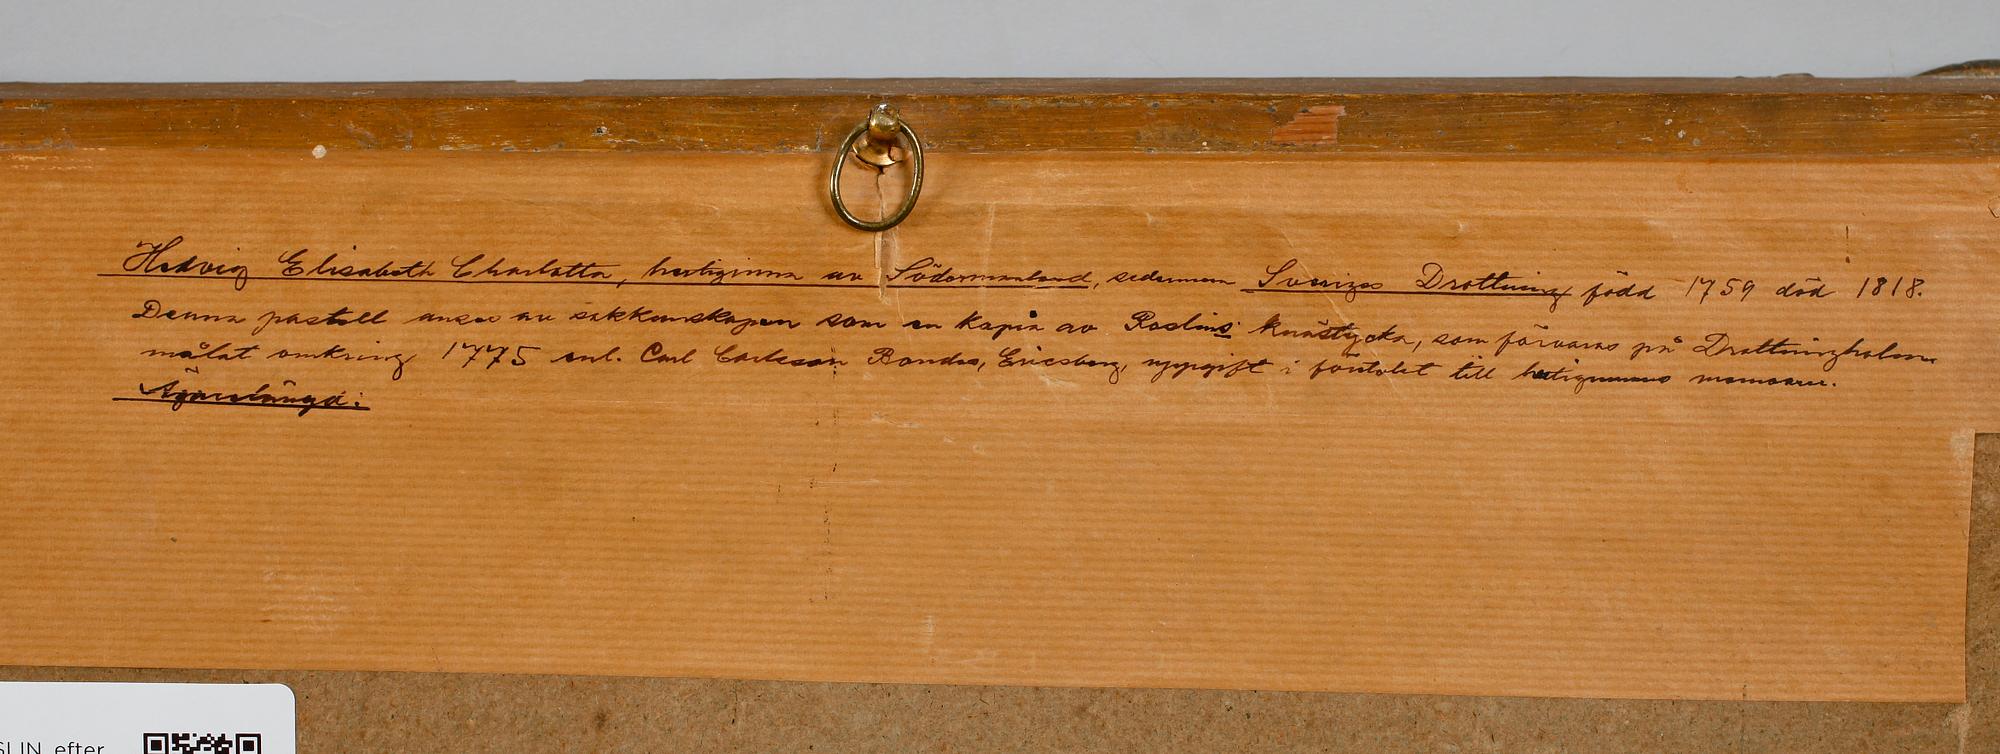 Hedvig Elisabeth Charlotta, hertiginna av Södermanland, sedermera Sveriges Drottning född 1759 död 1818.
Denna pastell anses av sakkunskapen som en kopia av Roslins knästycke, som förvaras på Drottningholm
målat omkring 1775 enl. Carl Carlsson Bondes, Ericsberg, uppgift i förtalet till hertiginnans memoarer.
Ägarelängd:
SLIN, efter